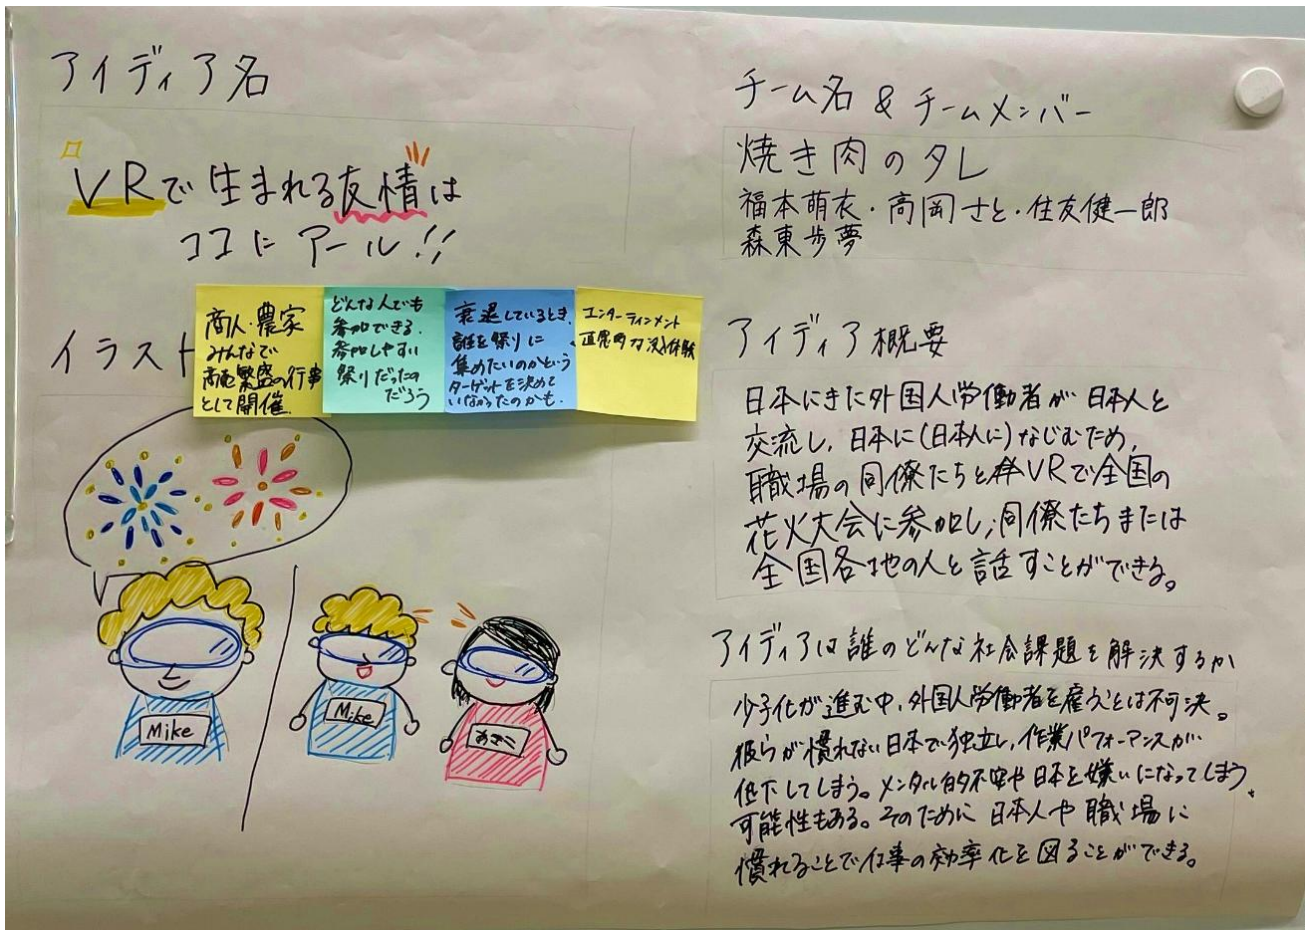 アイディア名
VRで生まれる友情は
ココにアール!!
商人・農家
みんなで
商売繁盛の行事
として開催.
どんな人でも
参加できる.
参加しやすい
祭りだったの
だろう
衰退しているとき、
誰を祭りに
集めたいのかという
ターゲットを決めて
いなかったのかも.
エンターテインメント
直感的な 体験
イラスト
Mike
Mike
あきこ
チーム名 & チームメンバー
焼き肉のタレ
福本萌衣・高岡さと・住友健一郎
森東歩夢
アイディア概要
日本にきた外国人労働者が日本人と
交流し、日本に(日本人に)なじむため、
職場の同僚たちとVRで全国の
花火大会に参加し、同僚たちまたは
全国各地の人と話すことができる。
アイディアは誰のどんな社会課題を解決するか
少子化が進む中、外国人労働者を雇うことは不可決。
彼らが慣れない日本で独立し、作業パフォーマンスが
低下してしまう。メンタル的不安や日本を嫌いになってしまう
可能性もある。そのために日本人や職場に
慣れることで仕事の効率化を図ることができる。